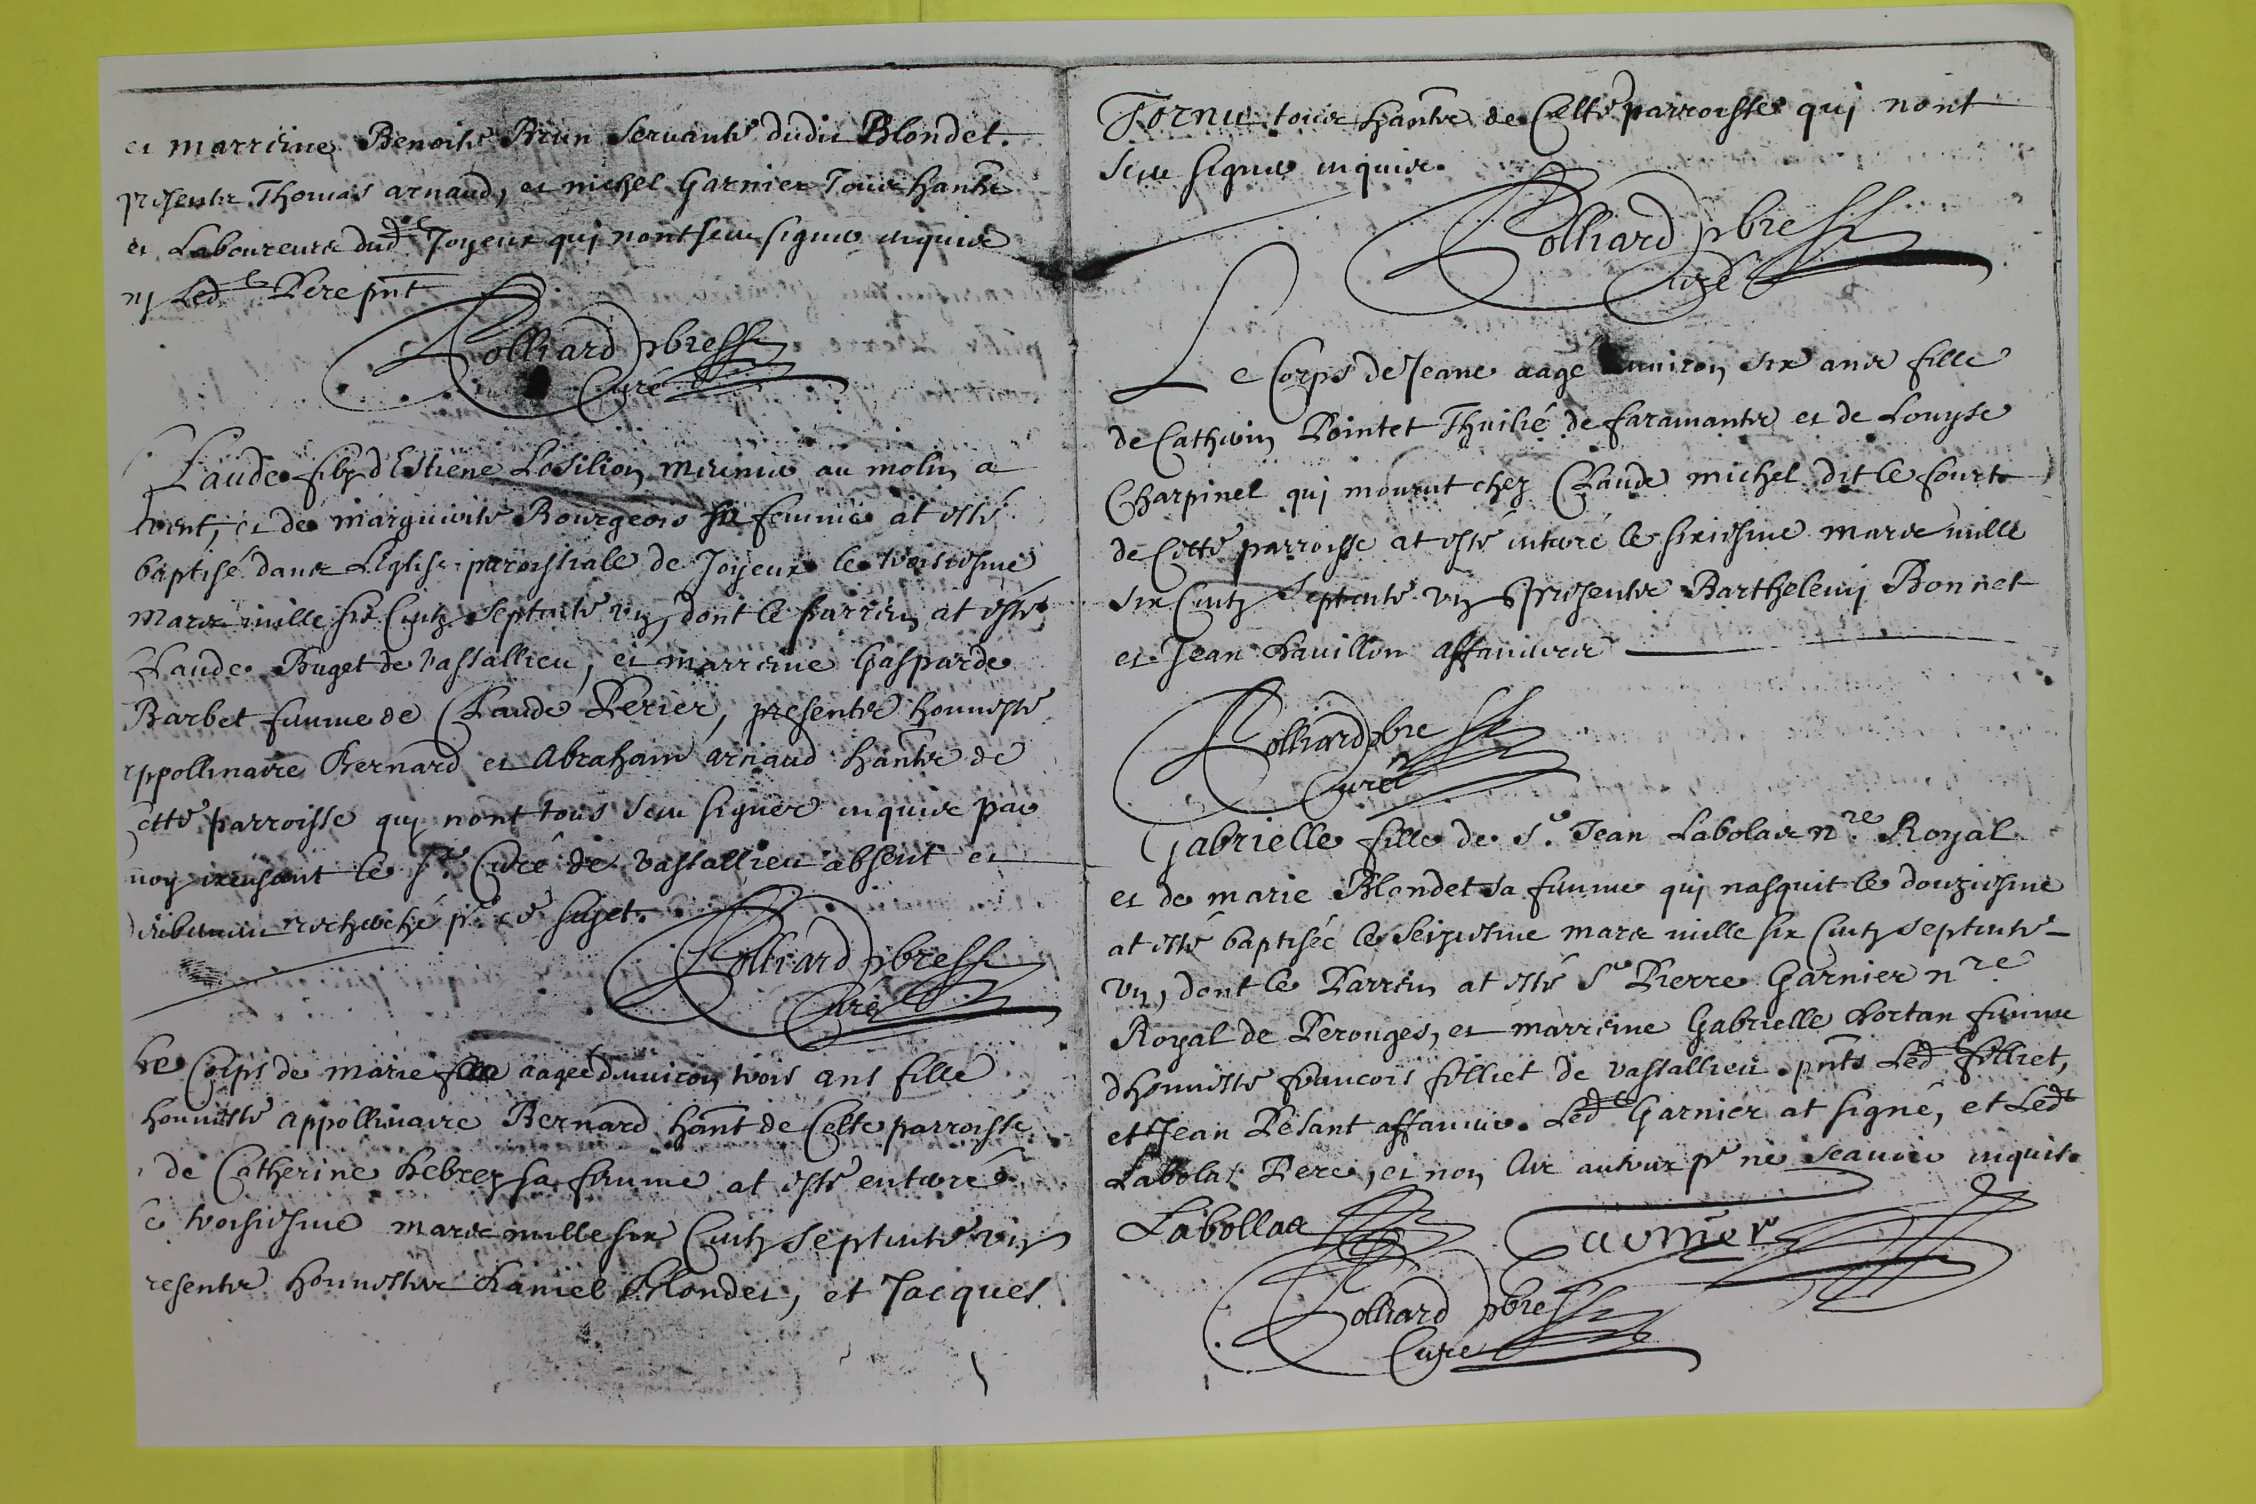 et marreine Benoite Brun servante dudit Blondet.
presentz Thomas arnaud, et michel Garnier Tous hantz
et Laboureurs dud^t Joyeux qui nont sceu signer enquis
ny Led^t Pere pnt
Rolliard pbre
Curé
Claude filz d'Estiene Losilion meunier au molin a
vent, et de marguerite Bourgeois sa femme at esté
baptisé dans L'Eglise paroissiale de Joyeux le troisiesme
Mars mille six Centz septente un, dont le parrein at esté
Claude Buget de vassallieu, et marreine Gasparde
Barbet femme de Claude Perier, presentz honneste
appollinaire Bernard et Abraham arnaud hantz de
cette parroisse qui nont tous sceu signer enquis par
moy le s^r Curé de vassallieu absent et
recherché p^r ce sujet.
Rolliard pbre
Curé
Le Corps de marie aagée d'environ trois ans fille
honneste appollinaire Bernard hant de Cette parroisse
de Catherine Hebrez sa femme at esté enterré
le troisiesme mars mille six Centz septente un
presentz honnestes Daniel Blondet, et Jacques
Tornu tous hantz de Cette parroisse qui nont
sceu signer enquis.
Rolliard pbre
Curé
Le Corps de Jeane aagé environ six ans fille
de Cathrin Pointet Thuilié de faramantz et de Louyse
Charpinel qui mourut chez Claude michel dit le Court
de Cette parroisse at esté enterré le sixiesme mars mille
six Centz septente un presentz Barthelemy Bonnet
et Jean Pavillon affaneurs
Rolliard pbre
Curé
Gabrielle fille de s^r Jean Labolas n^re Royal
et de marie Blondet sa femme qui nasquit le douziesme
at esté baptisée le seiziesme mars mille six Centz septente
un, dont le Parrein at esté s^r Pierre Garnier n^re
Royal de Perouges, et marreine Gabrielle Hortan femme
d'honneste francois filliet de vassallieu pnts Led^t filliet,
et Jean Pesant affaneur. Led^t Garnier at signé, et Led^t
Labolas Pere, et non les autres p^r ne scavoir enquis.
Labollas Garnier
Rolliard pbre
Curé